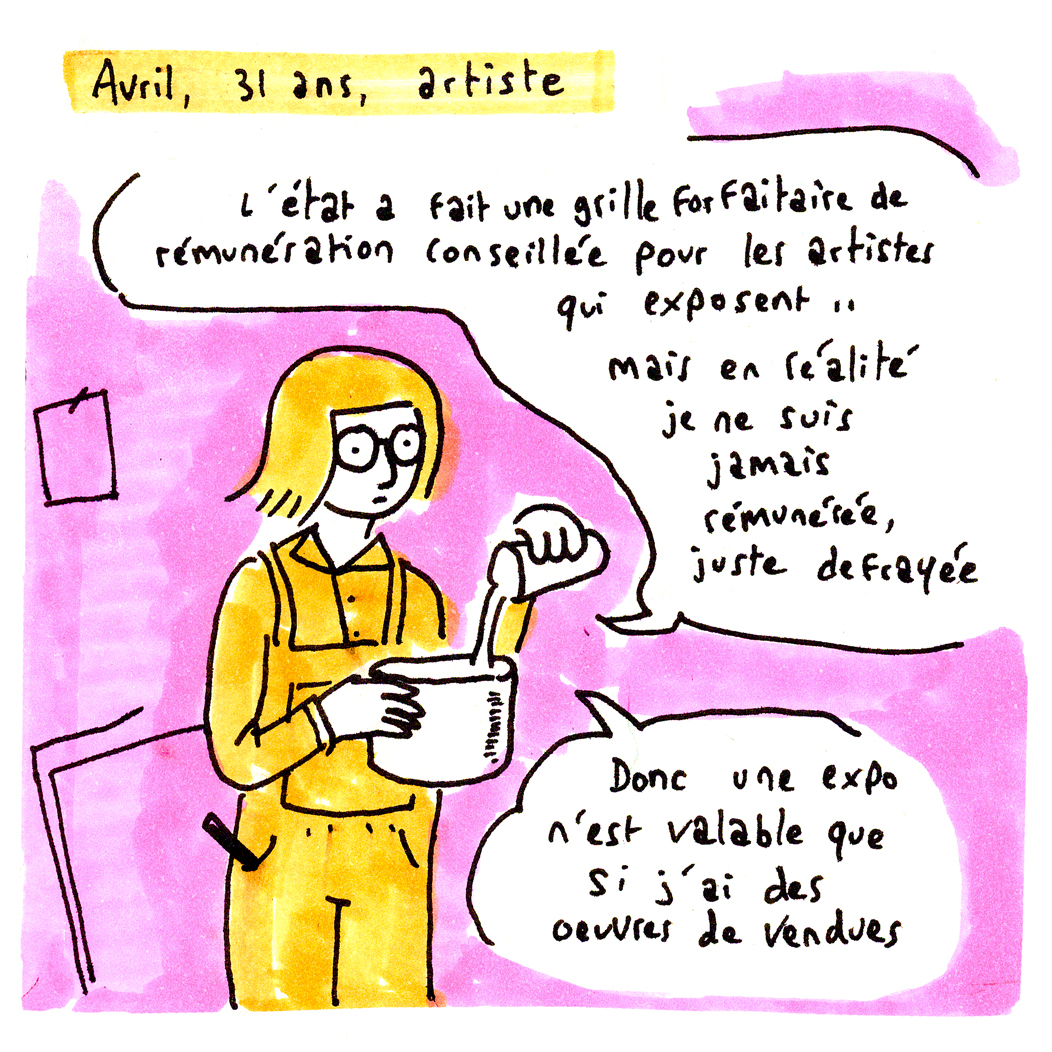 Avril, 31 ans, artiste
L'état a fait une grille forfaitaire de
rémunération conseillée pour les artistes
qui exposent ..
mais en réalité
je ne suis
jamais
rémunérée,
juste defrayée
Donc une expo
n'est valable que
si j'ai des
oeuvres de vendues